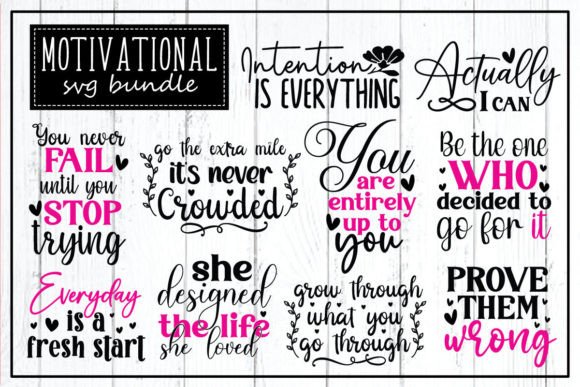 MOTIVATIONAL
svg bundle
Intention
IS EVERYTHING
Actually
I CAN
You never
FAIL
until you
STOP
trying
go the extra mile
it's never
Crowded
You
are
entirely
up to
you
Be the one
WHO
decided to
go for it
Everyday
is a
fresh start
she
designed
the life
she loved
grow through
what you
go through
PROVE
THEM
wrong